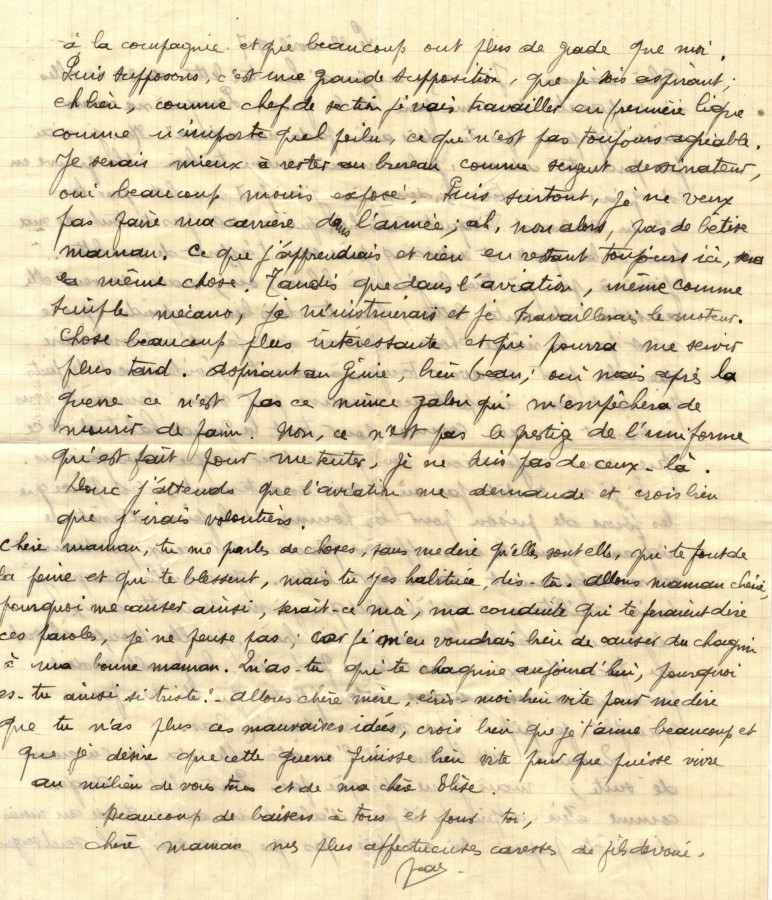 à la compagnie et que beaucoup ont plus de grade que moi.
Puis supposons, c'est une grande supposition, que je sois aspirant;
eh bien, comme chef de section je vais travailler en première ligne
comme n'importe quel poilu, ce qui n'est pas toujours agréable.
Je serais mieux à rester au bureau comme sergent dessinateur,
oui beaucoup moins exposé. Puis surtout, je ne veux
pas faire ma carrière dans l'armée; ah, non alors, pas de bêtise
maman. Ce que j'apprendrais et rien en restant toujours ici, sera
la même chose. Tandis que dans l'aviation, même comme
simple mécano, je m'instruirais et je travaillerais le moteur.
Chose beaucoup plus intéressante et qui pourra me servir
plus tard. Aspirant au Génie, bien beau; oui mais après la
guerre ce n'est pas ce mince galon qui m'empêchera de
mourir de faim. Non, ce n'est pas le prestige de l'uniforme
qu'est fait pour me tenter, je ne suis pas de ceux-là.
Donc j'attends que l'aviation me demande et crois bien
que j'irais volontiers.
Chère maman, tu me parles de choses, sans me dire qu'elles sont elle, qui te font de
la peine et qui te blessent, mais tu y es habituée, dis-tu. Allons maman chérie,
pourquoi me causer ainsi, serait-ce moi, ma conduite qui te feraient dire
ces paroles, je ne pense pas; car je m'en voudrais bien de causer du chagrin
à ma bonne maman. Qu'as-tu qui te chagrine aujourd'hui, pourquoi
es-tu ainsi si triste? - Allons chère mère, écris-moi bien vite pour me dire
que tu n'as plus ces mauvaises idées, crois bien que je t'aime beaucoup et
que je désire que cette guerre finisse bien vite pour que puisse vivre
au milieu de vous tous et de ma chère Elise.
Beaucoup de baisers à tous et pour toi,
chère maman mes plus affectueuses caresses de fils dévoué.